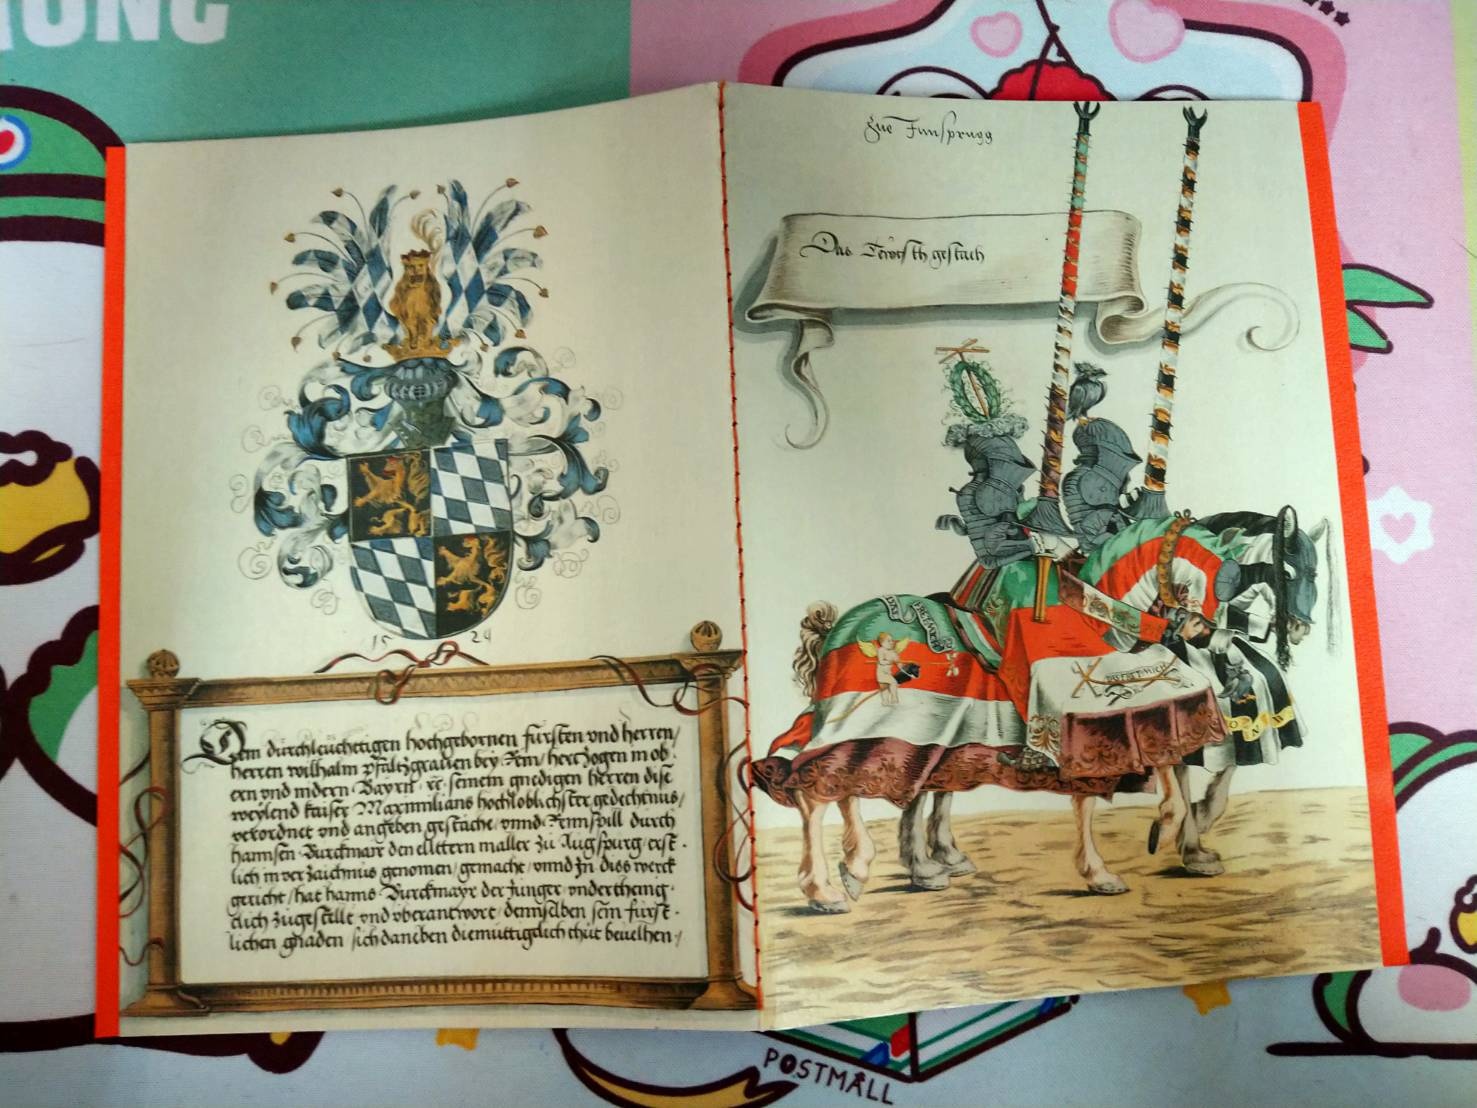 15 24
Dem durchleuchetigen hochgebornen fürsten vnd herren/
herren wilhalm pfaltzgrauen bey Rein/ hertzogen in ob.
ern vnd nidern Bayrn. rc. seinem gnedigen herren dise
weylend kaiser Maximilians hochloblichster gedechtnus/
verordnet vnd angeben gestäche/ vnnd Rennspill durch
hannsen Burckmair den elltern maller zu Augspurg/ erst.
lich in verzaichnus genomen/ gemacht/ vnnd Jn diss werck
gericht/ hat hanns Burckmayr der Junger vnderthenig.
clich zugestellt vnd vberantwort/ dennselben sein fürst.
lichen gnaden sich daneben diemüttigclich thüt beuelhen/
Zue Jnnsprugg
Das gestäch
POSTMALL